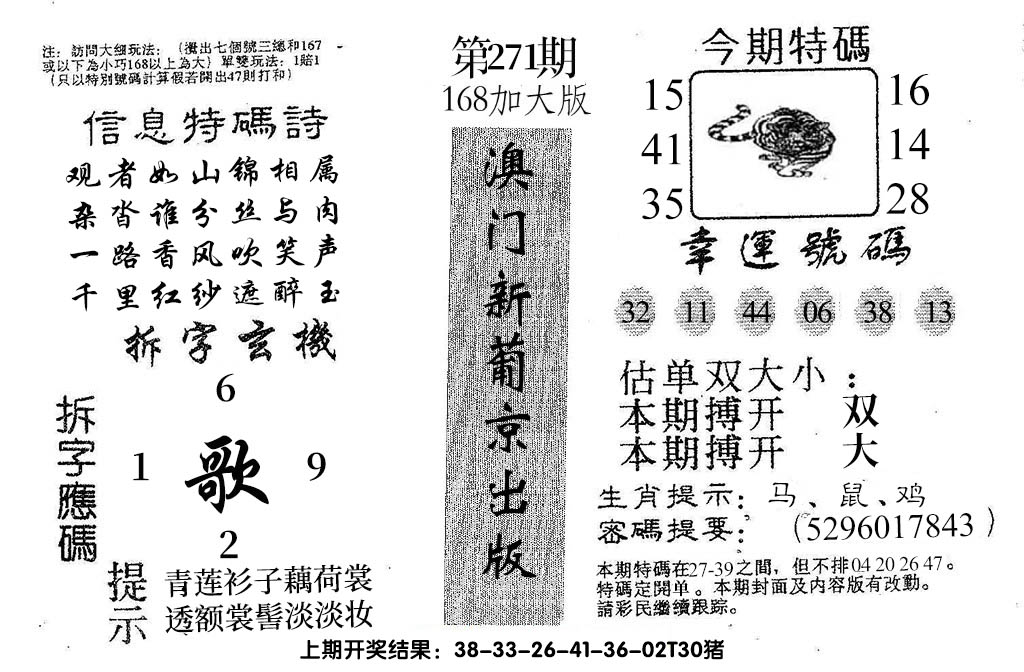 注：訪問大细玩法：（攪出七個號三總和167
或以下為小巧168以上為大）單雙玩法：1賠1
（只以特別號碼計算假若開出47則打和）
信息特碼詩
观者如山锦相属
杂沓谁分丝与肉
一路香风吹笑声
千里红纱遮醉玉
拆字玄機
拆字應碼
6
1 歌 9
2
提示
青莲衫子藕荷裳
透额裳髻淡淡妆
第271期
168加大版
澳门新葡京出版
今期特碼
15 16
41 14
35 28
幸運號碼
32 11 44 06 38 13
估单双大小：
本期搏开 双
本期搏开 大
生肖提示：马、鼠、鸡
密碼提要：（5296017843）
本期特碼在27-39之間，但不排04 20 26 47。
特碼定開单。本期封面及内容版有改動。
請彩民繼續跟踪。
上期开奖结果：38-33-26-41-36-02T30猪